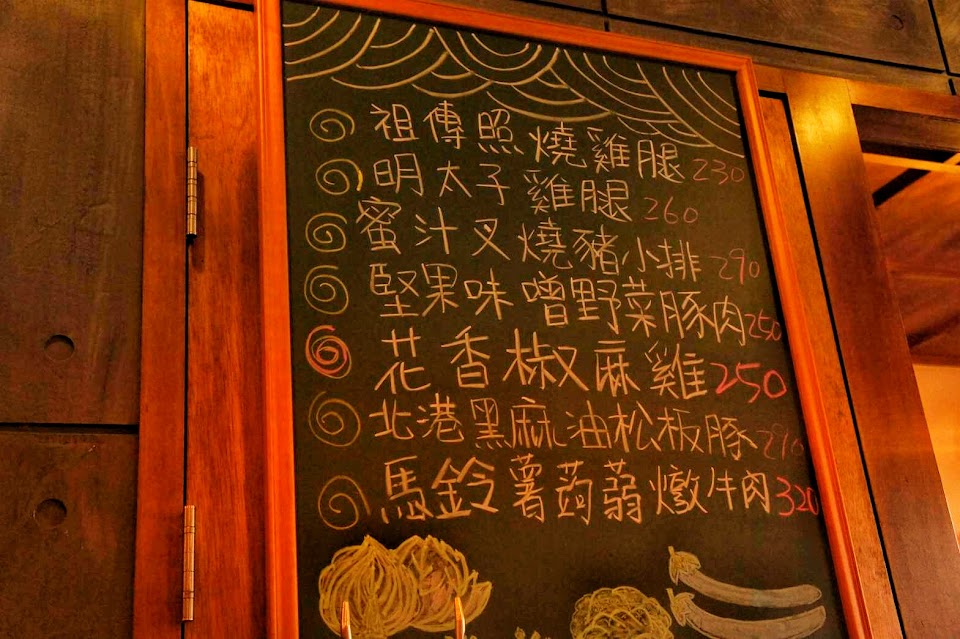 祖傳照燒雞腿 230
明太子雞腿 260
蜜汁叉燒豬小排 290
堅果味噌野菜豚肉 250
花香椒麻雞 250
北港黑麻油松板豚 290
馬鈴薯蒟蒻燉牛肉 320